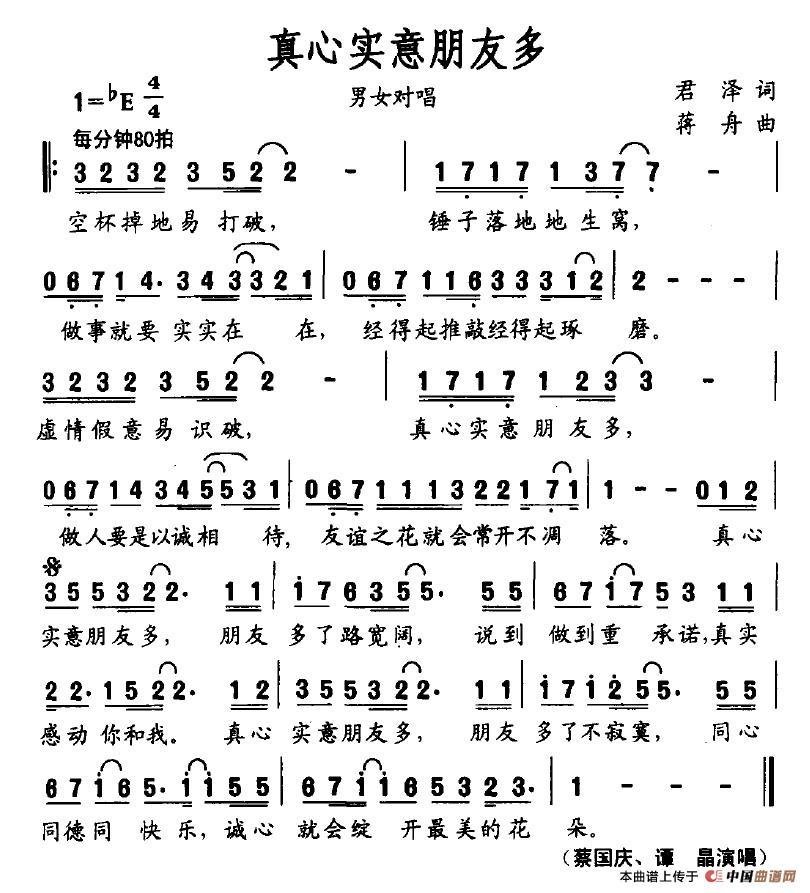 真心实意朋友多
1=♭E 4/4
男女对唱
君泽词
每分钟80拍
蒋舟曲
3232 3522 - 1717 1377 -
空杯掉地易打破， 锤子落地地生窝，
06714. 3433321 067116333212 2 - - -
做事就要实实在 在， 经得起推敲经得起琢 磨。
3232 3522 - 1717 1233 -
虚情假意易识破， 真心实意朋友多，
067143455531 067111322171 1 - - 012
做人要是以诚相 待， 友谊之花就会常开不凋 落。 真心
355322. 11 176355. 55 6717531 1
实意朋友多， 朋友 多了路宽阔， 说到 做到重 承诺，真实
22. 1522. 12 355322. 11 171255. 55
感动 你和我。 真心 实意朋友多， 朋友 多了不寂寞， 同心
67165. 1155 67116532323. 1 - -
同德同 快乐，诚心 就会绽 开最美的花 朵。
（蔡国庆、谭 晶演唱）
本曲谱上传于 中国曲谱网